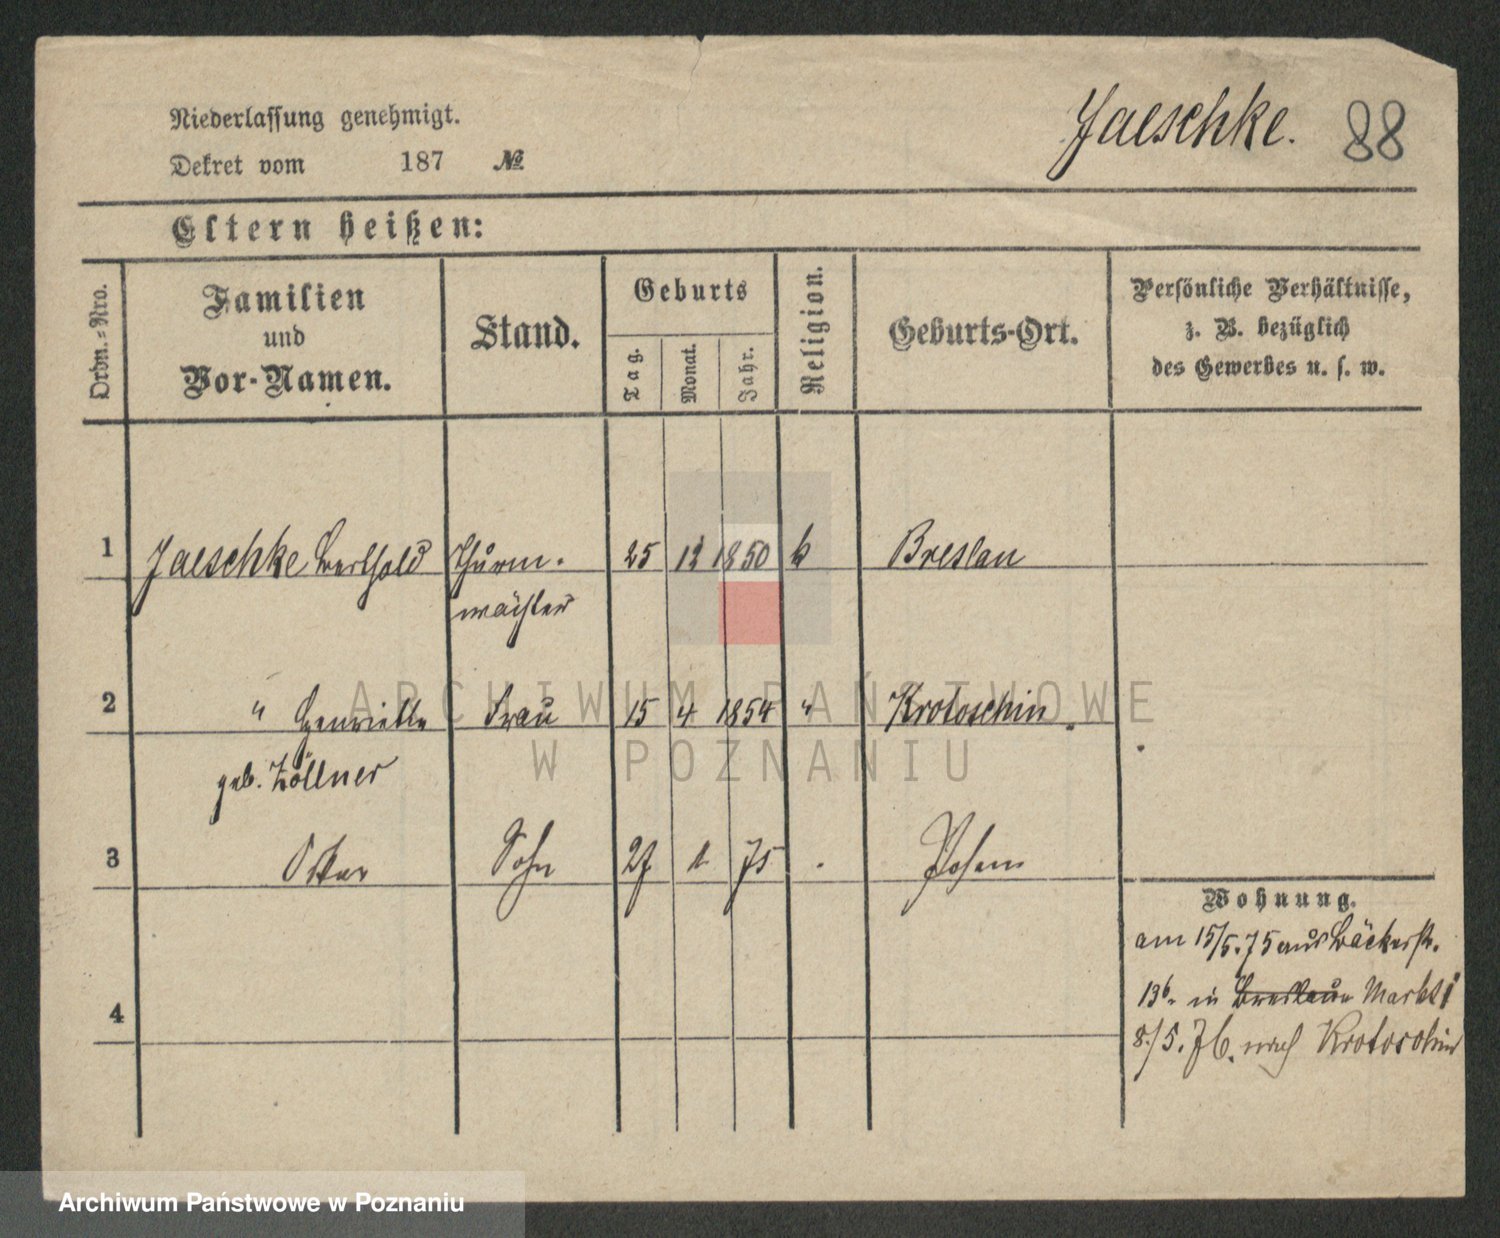 Niederlassung genehmigt.
Dekret vom 187 №
Jaeschke. 88
Eltern heißen:
Ordn.-Nro.
Familien
und
Vor-Namen.
Stand.
Geburts
Tag.
Monat.
Jahr.
Religion.
Geburts-Ort.
Persönliche Verhältnisse,
z. B. bezüglich
des Gewerbes u. s. w.
1 Jaeschke Berthold Thurm- 25 12 1850 k Breslau
wächter
2 " Henriette Frau 15 4 1854 " Krotoschin
geb. Zöllner
3 Oskar Sohn 27 1 75 Posen
4
Wohnung.
am 15/5. 75 aus Bäckerstr.
13b. in Breslau Markt
8/5. 76. nach Krotoschin
ARCHIWUM PAŃSTWOWE
W POZNANIU
Archiwum Państwowe w Poznaniu